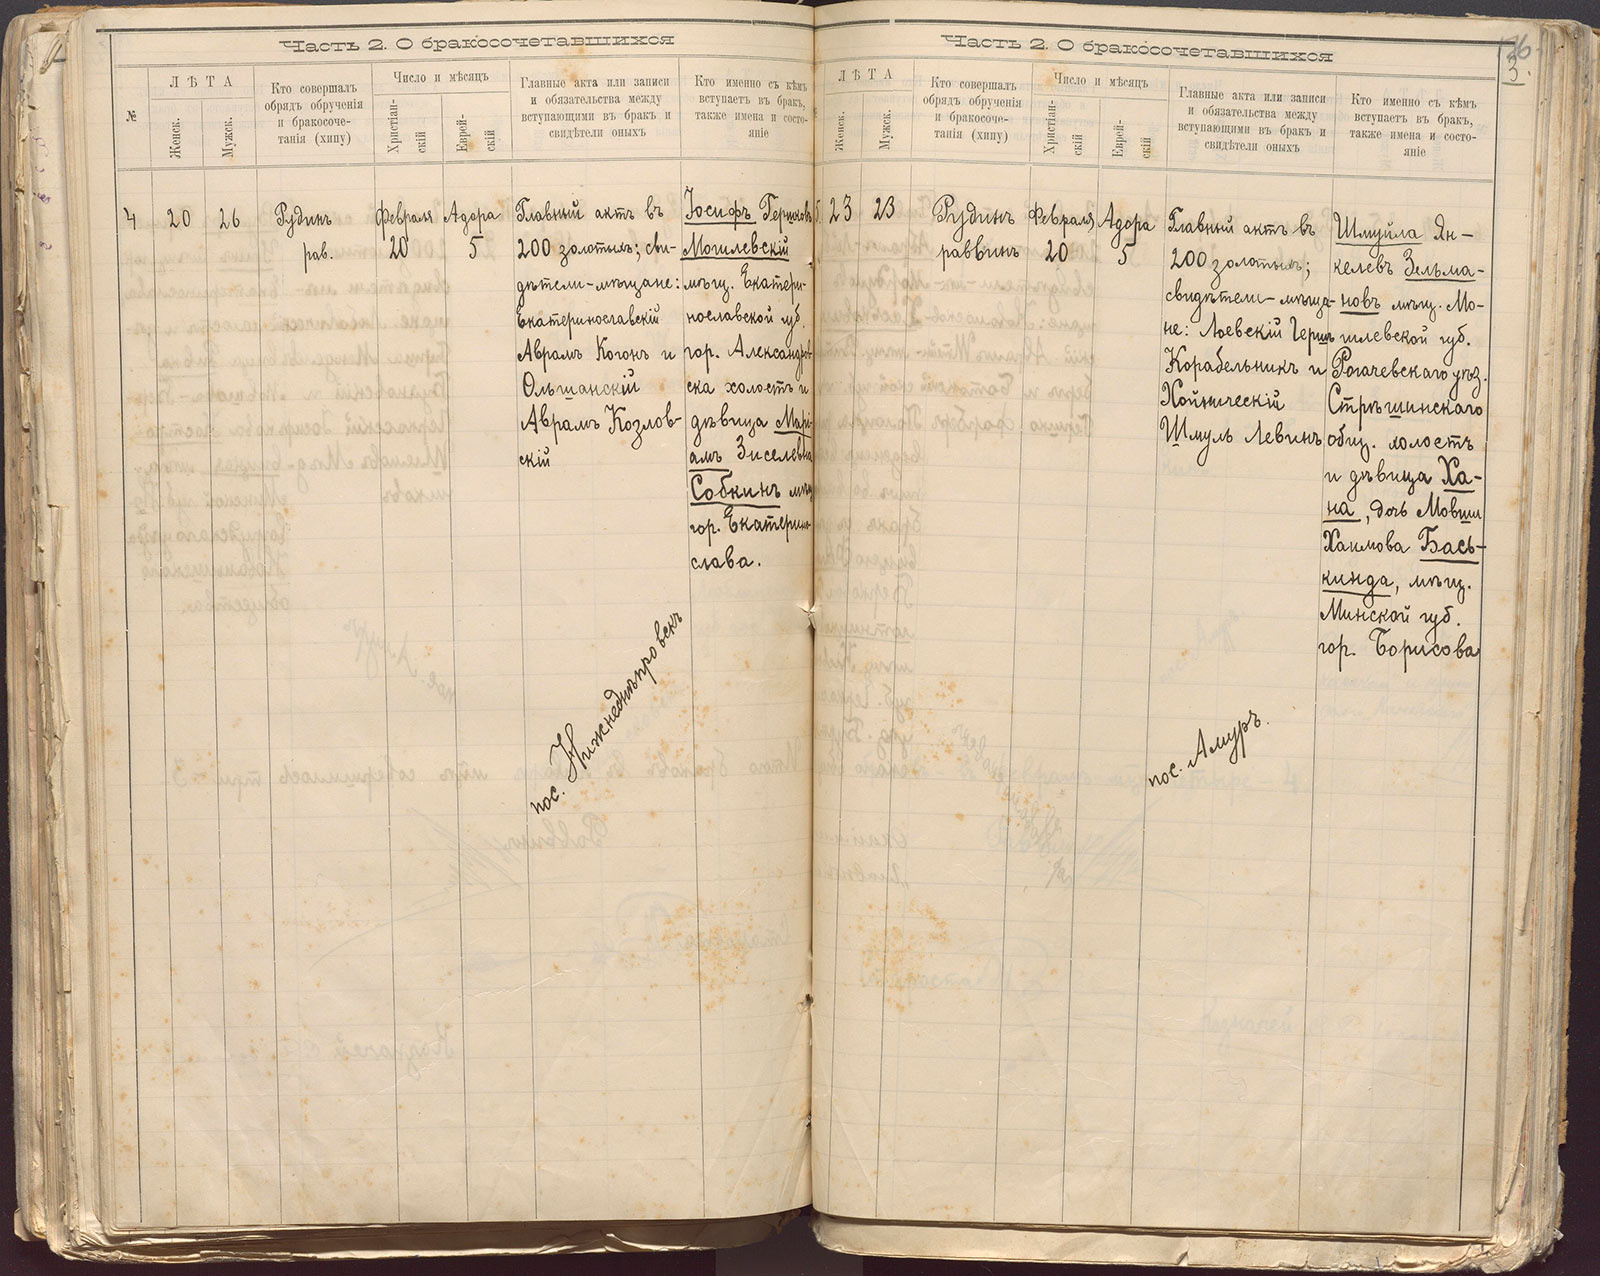 Часть 2. О бракосочетавшихся
№
ЛѢТА
Женск.
Мужск.
Кто совершалъ
обрядъ обрученія
и бракосоче-
танія (хипу)
Число и мѣсяцъ
Христіан-
скій
Еврей-
скій
Главные акта или записи
и обязательства между
вступающими въ бракъ и
свидѣтели оныхъ
Кто именно съ кѣмъ
вступаетъ въ бракъ,
также имена и состо-
яніе
4
20
26
Рудинъ
рав.
Февраля
20
Адора
5
Главный актъ въ
200 золотыхъ; сви-
дѣтели-мѣщане:
Екатеринославскій
Аврамъ Когонъ и
Ольшанскій
Аврамъ Козлов-
скій
Іосифъ Гершковъ
Могилевскій
мѣщ. Екатери-
нославской губ.
гор. Александров-
ска холостъ и
дѣвица Марі-
амъ Зиселевна
Собкинъ мѣщ
гор. Екатерино-
слава.
пос. Нижнеднѣпровскъ
Часть 2. О бракосочетавшихся
3.
ЛѢТА
Женск.
Мужск.
Кто совершалъ
обрядъ обрученія
и бракосоче-
танія (хипу)
Число и мѣсяцъ
Христіан-
скій
Еврей-
скій
Главные акта или записи
и обязательства между
вступающими въ бракъ и
свидѣтели оныхъ
Кто именно съ кѣмъ
вступаетъ въ бракъ,
также имена и состо-
яніе
5.
23
23
Рудинъ
раввинъ
Февраля
20
Адора
5
Главный актъ въ
200 золотыхъ;
свидѣтели-мѣща-
не: Лоевскій Гершъ
Корабельникъ и
Хойникскій
Шмуль Левинъ
Шмуйла Ян-
келевъ Зельма-
новъ мѣщ. Мо-
гилевской губ.
Рогачевскаго уѣз.
Стрѣшинскаго
общ. холостъ
и дѣвица Ха-
на, дочь Мовши
Хаимова Бась-
кинда, мѣщ.
Минской губ.
гор. Борисова
пос. Амуръ.